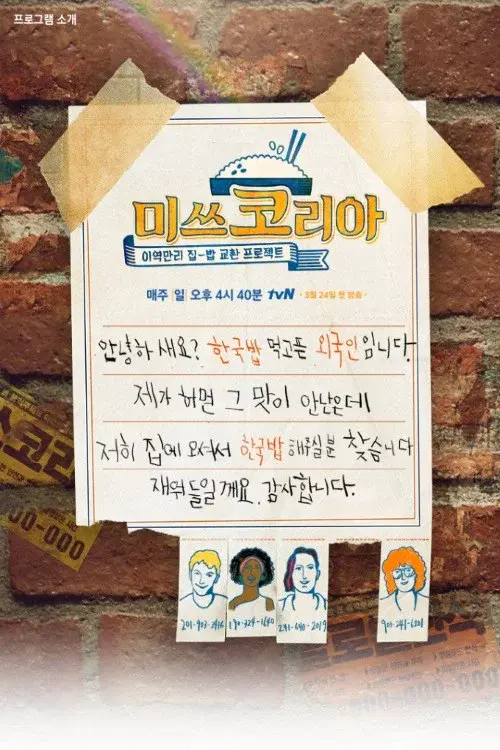 프로그램 소개
미쓰코리아
이역만리 집-밥 교환 프로젝트
매주 일 오후 4시 40분 tvN · 3월 24일 첫 방송 ·
안녕하 새요? 한국밥 먹고픈 외국인 임니다.
제가 하면 그 맛이 안난은데
저희 집에 오셔서 한국밥 해주실분 찾습니다
재워 들일 게요. 감사합니다.
쓰코리
00-000
903-241-6201
000-000